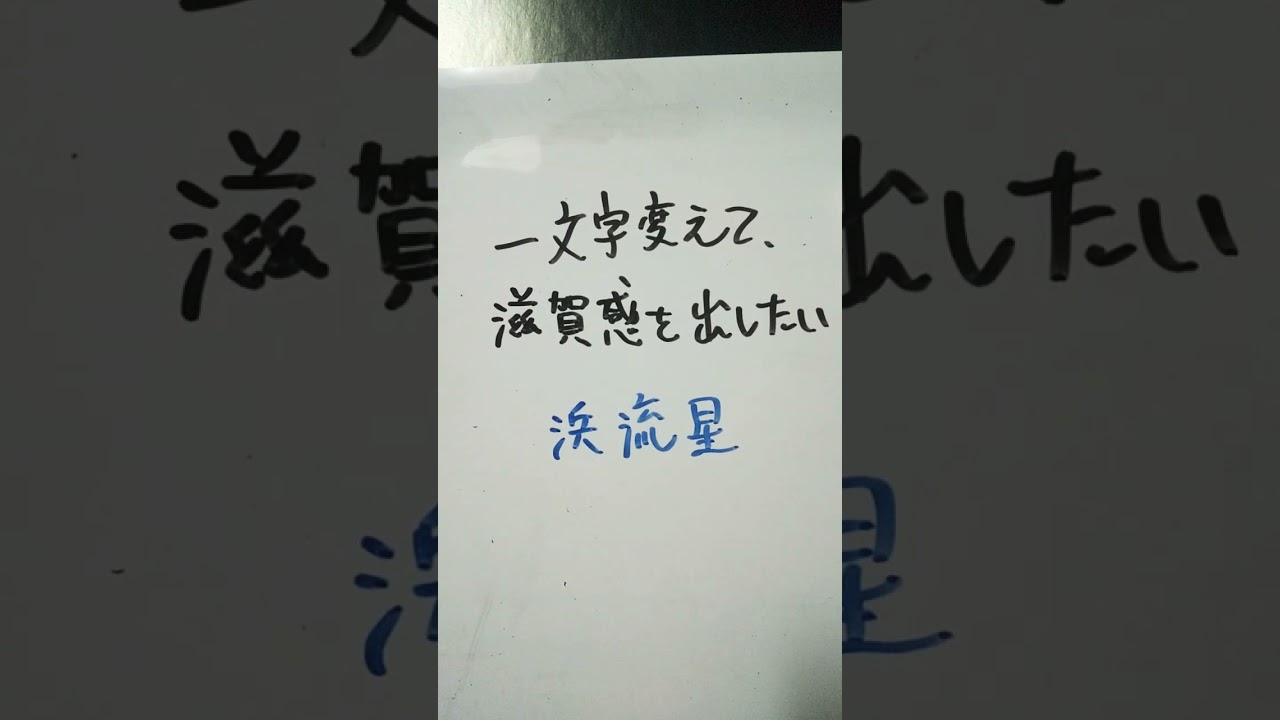 一文字変えて、
滋賀感を出したい
浜流星